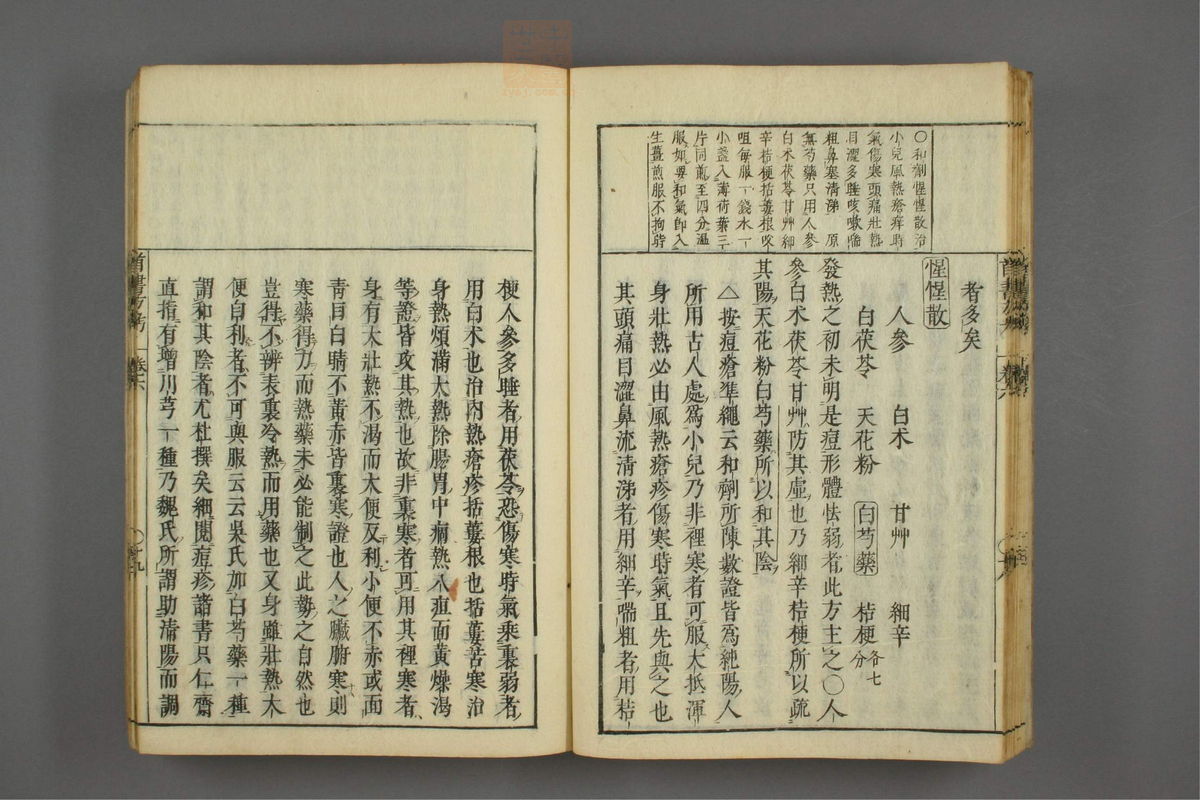 ○和劑惺惺散治
小兒風熱瘡疹時
氣傷寒頭痛壯熱
目澀多睡咳嗽喘
粗鼻塞清涕　原
無芍藥只用人參
白朮茯苓甘艸細
辛桔梗括蔞根㕮
咀每服一錢水一
小盞入薄荷葉三
片同煎至四分溫
服如要和氣卽入
生薑煎服不拘時
者多矣
惺惺散
人參　白朮　甘艸　細辛
白茯苓　天花粉　白芍藥　桔梗各七分
發熱之初未明是痘形體怯弱者此方主之○人
參白朮茯苓甘艸防其虛也乃細辛桔梗所以疏
其陽天花粉白芍藥所以和其陰
△按痘瘡準繩云和劑所陳數證皆爲純陽人
所用古人處爲小兒乃非裡寒者可服大抵渾
身壯熱必由風熱瘡疹傷寒時氣且先與之也
其頭痛目澀鼻流清涕者用細辛喘粗者用桔
梗人參多睡者用茯苓恐傷寒時氣乘裏弱者
用白朮也治內熱瘡疹括蔞根也括蔞苦寒治
身熱煩滿大熱除腸胃中痼熱八疸面黃燥渴
等證皆攻其熱也故非裏寒者可用其裡寒者
身有大壯熱不渴而大便反利小便不赤或面
靑目白睛不黃赤皆裏寒證也人之臟腑寒則
寒藥得力而熱藥未必能制之此勢之自然也
豈得不辨表裏冷熱而用藥也又身雖壯熱大
便自利者不可與服云云吳氏加白芍藥一種
謂和其陰者尤杜撰矣細閱痘疹諸書只仁齋
直指有增川芎一種乃魏氏所謂助清陽而調
首書方考
卷六